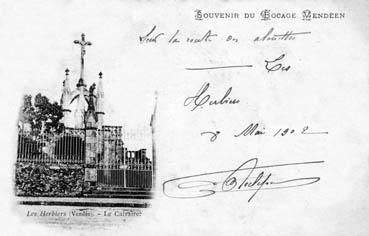 Souvenir du Bocage Vendéen
Sur la route des alouettes
Les
Herbiers
8 Mai 1902
Les Herbiers (Vendée). - Le Calvaire